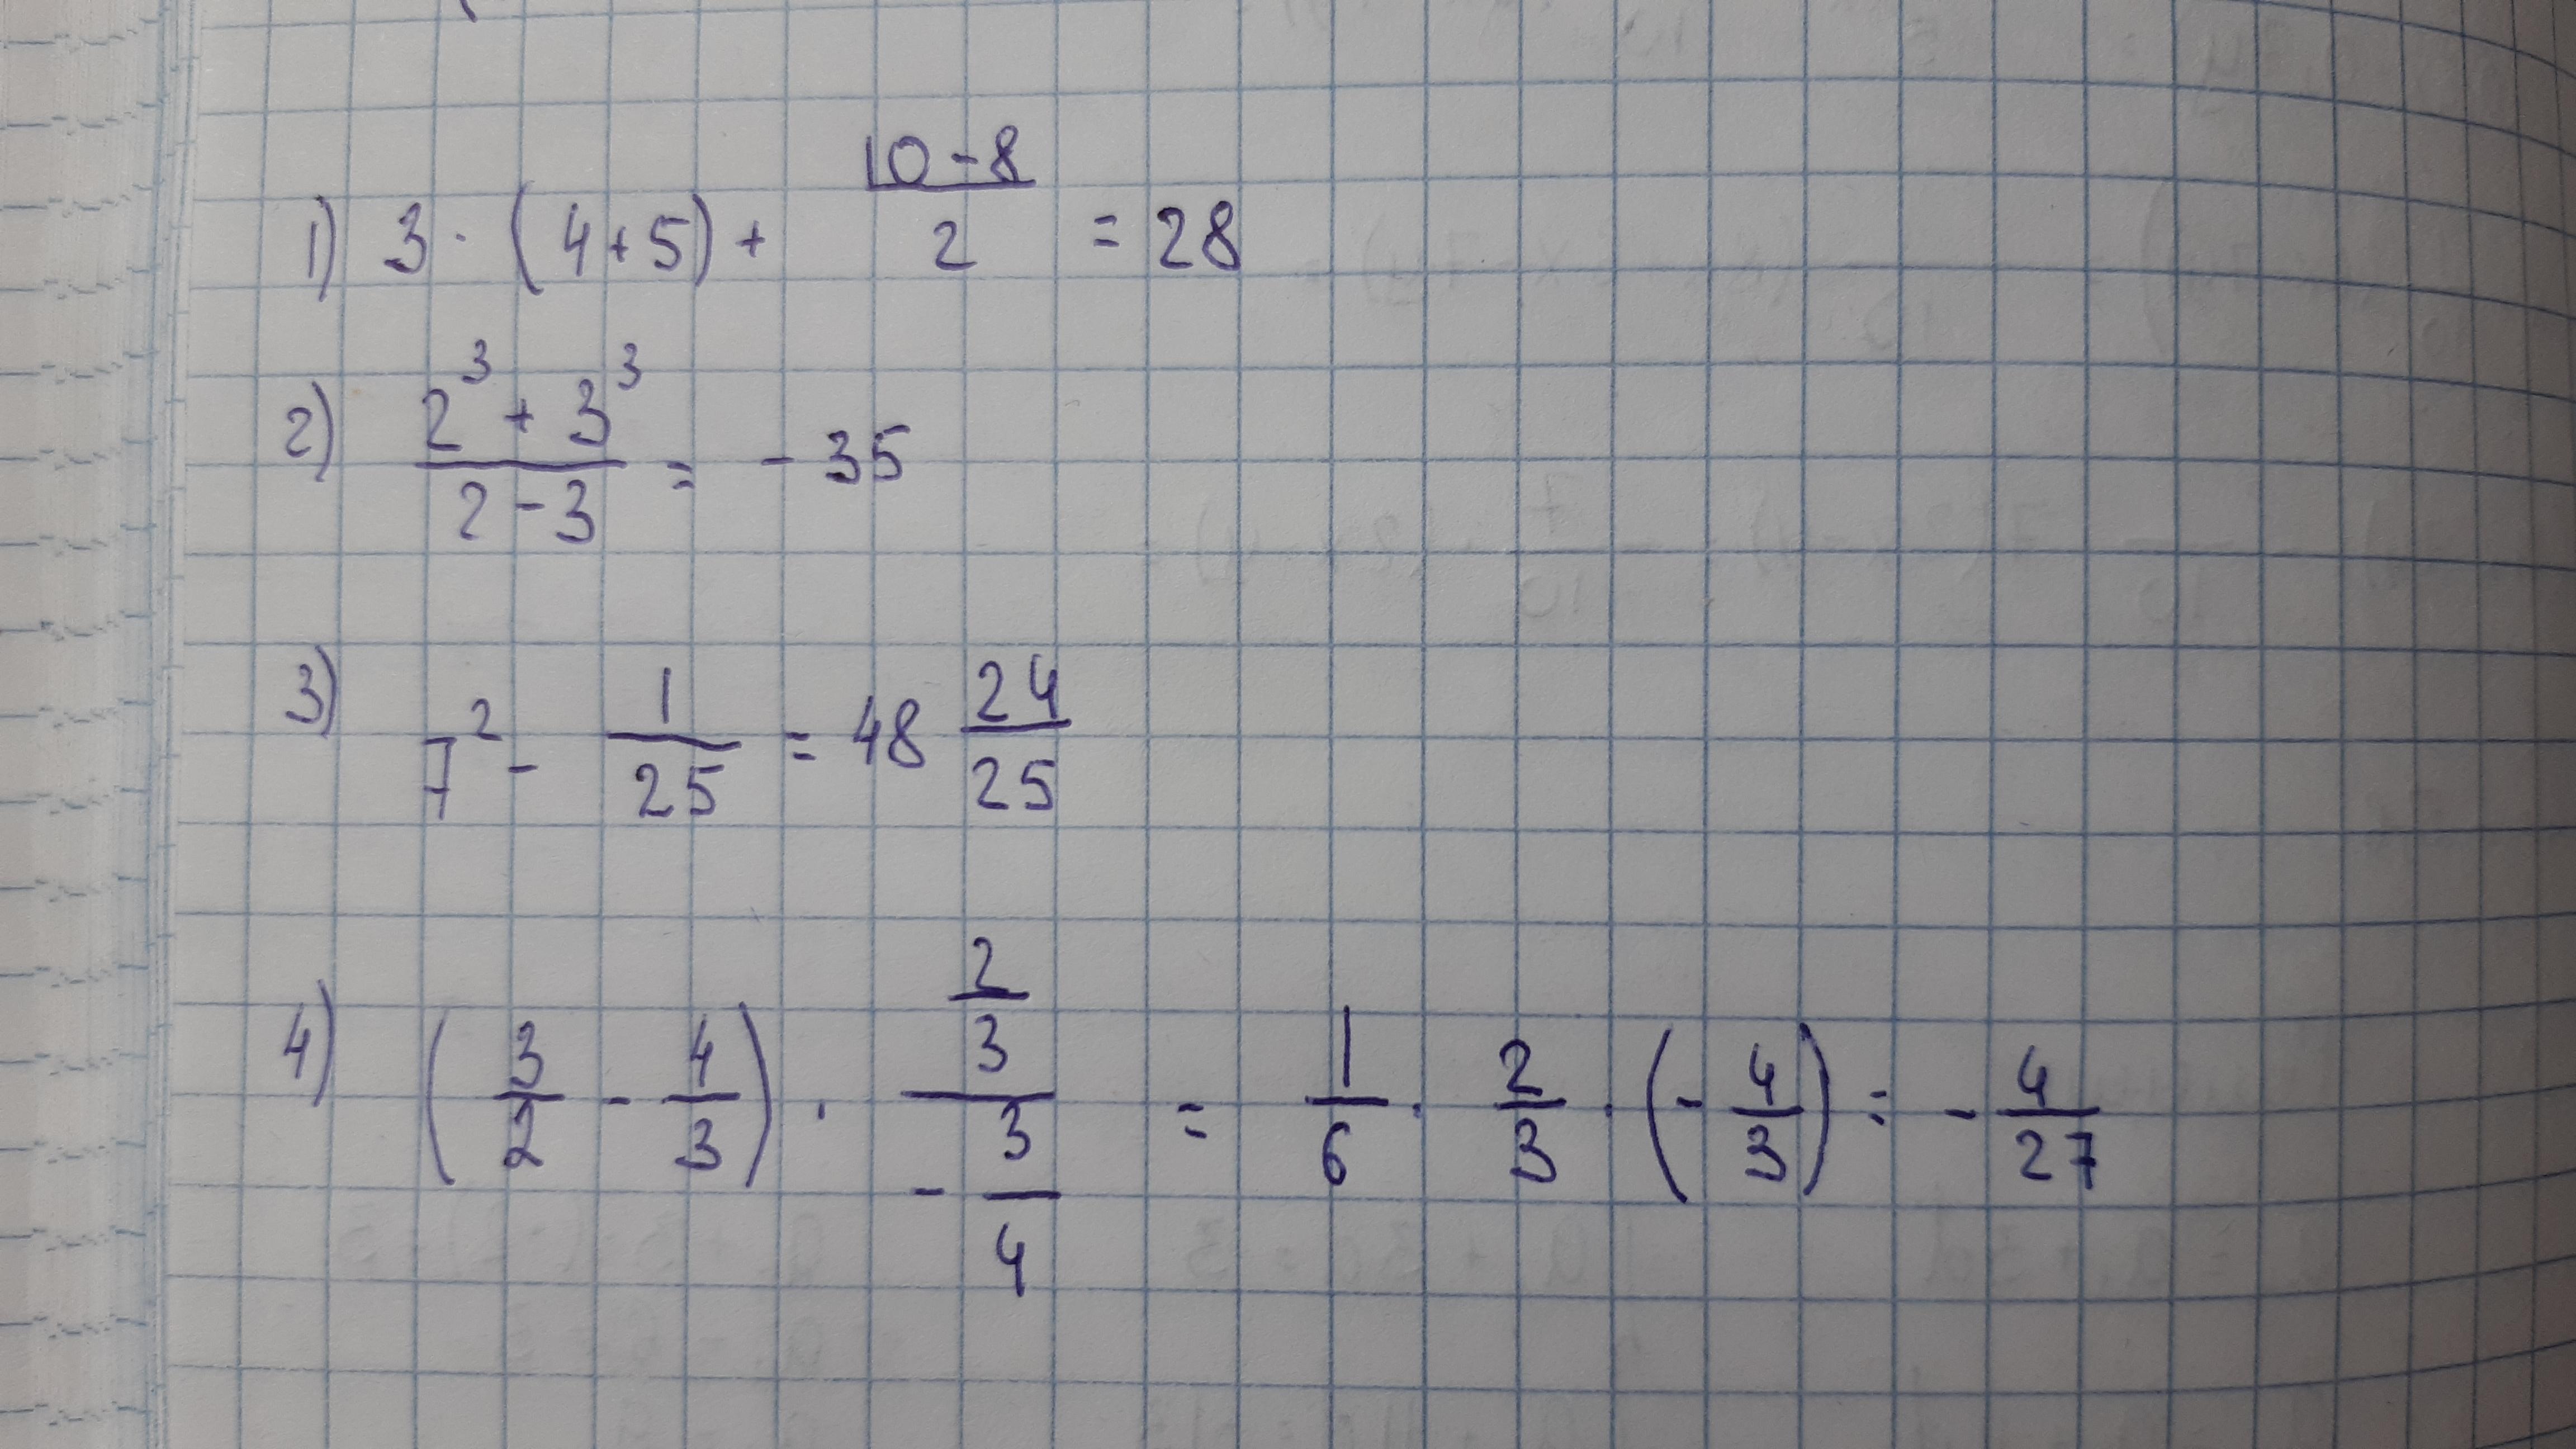 1) 3 · (4+5) + (10-8)/2 = 28
2) (2³ + 3³)/(2-3) = -35
3) 7² - 1/25 = 48 24/25
4) (3/2 - 4/3) · (2/3)/(-3/4) = 1/6 · 2/3 · (-4/3) = -4/27